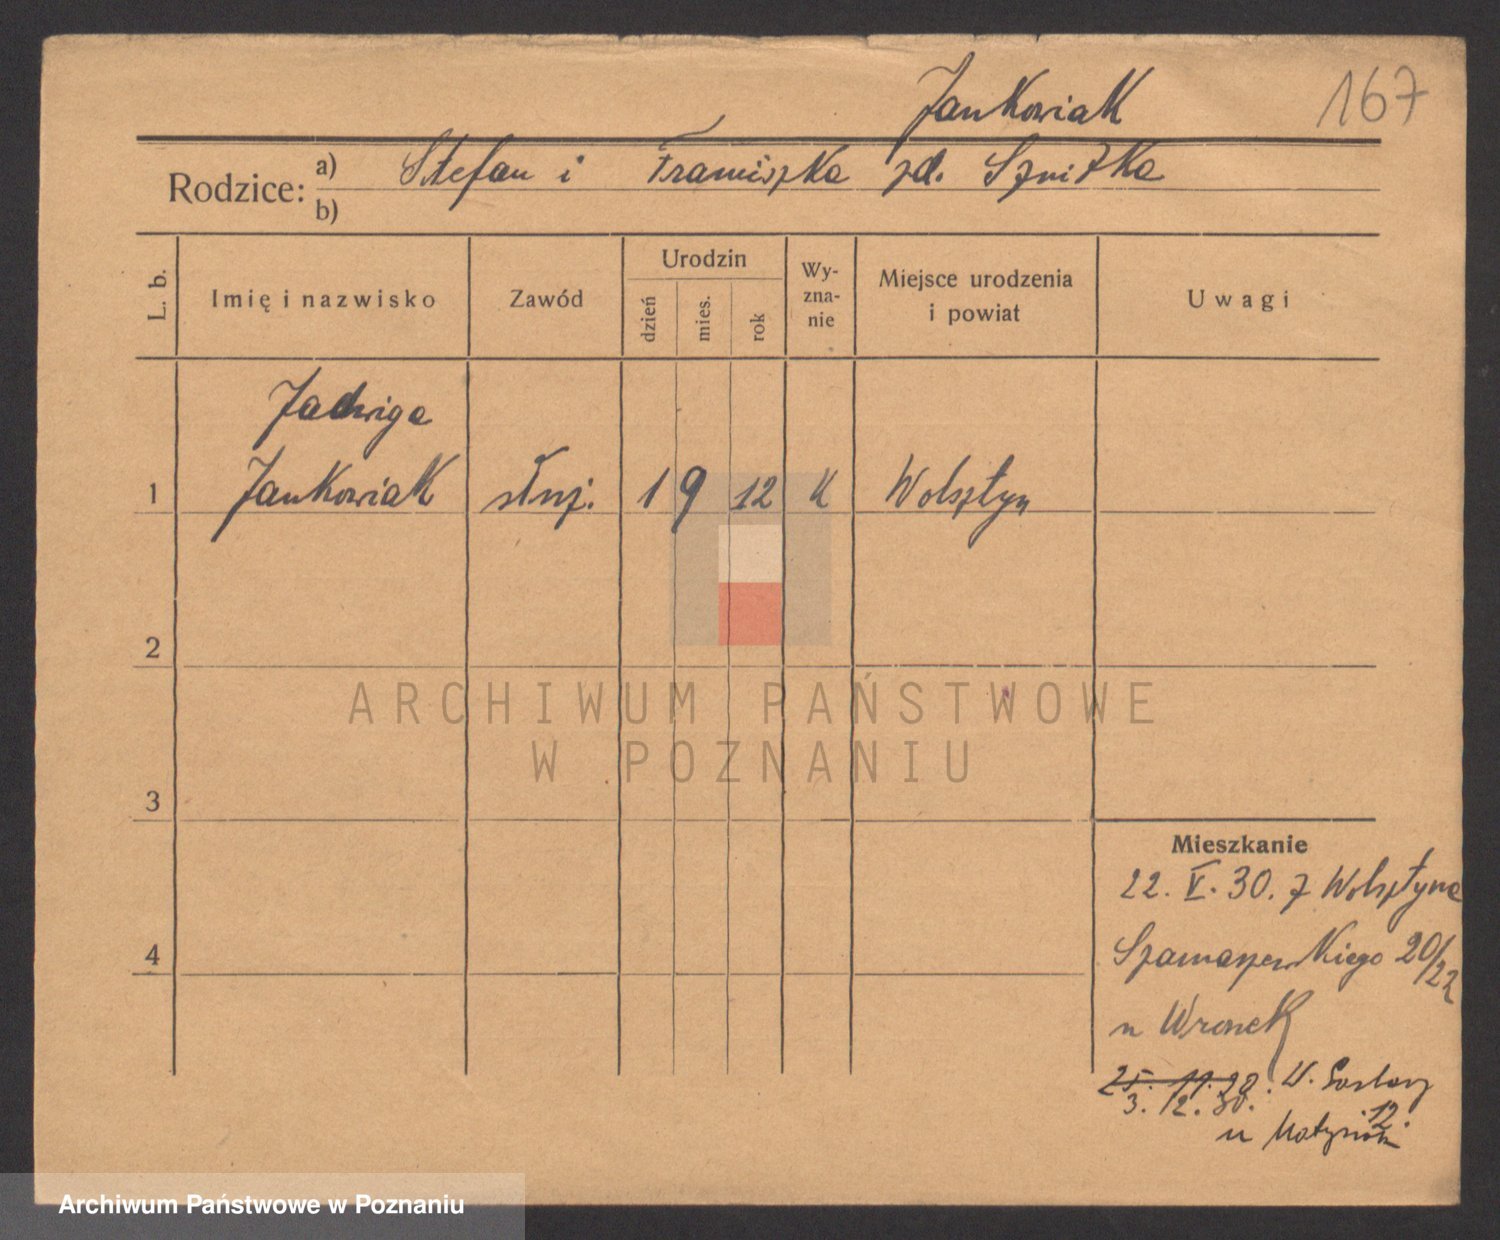 Jankowiak
167
Rodzice: a) Stefan i Franciszka zd. Sznitka
b)
L. b. Imię i nazwisko Zawód Urodzin dzień mies. rok Wy-zna-nie Miejsce urodzenia i powiat Uwagi
Jadwiga
1 Jankowiak służ. 1 9 12 K Wolsztyn
2
ARCHIWUM PAŃSTWOWE
W POZNANIU
3
Mieszkanie
22. V. 30. z Wolsztyna
Szamarzewskiego 20/22
4
u Wronek
25. 11. 30. W.
3. 12. 30. 12.
u
Archiwum Państwowe w Poznaniu